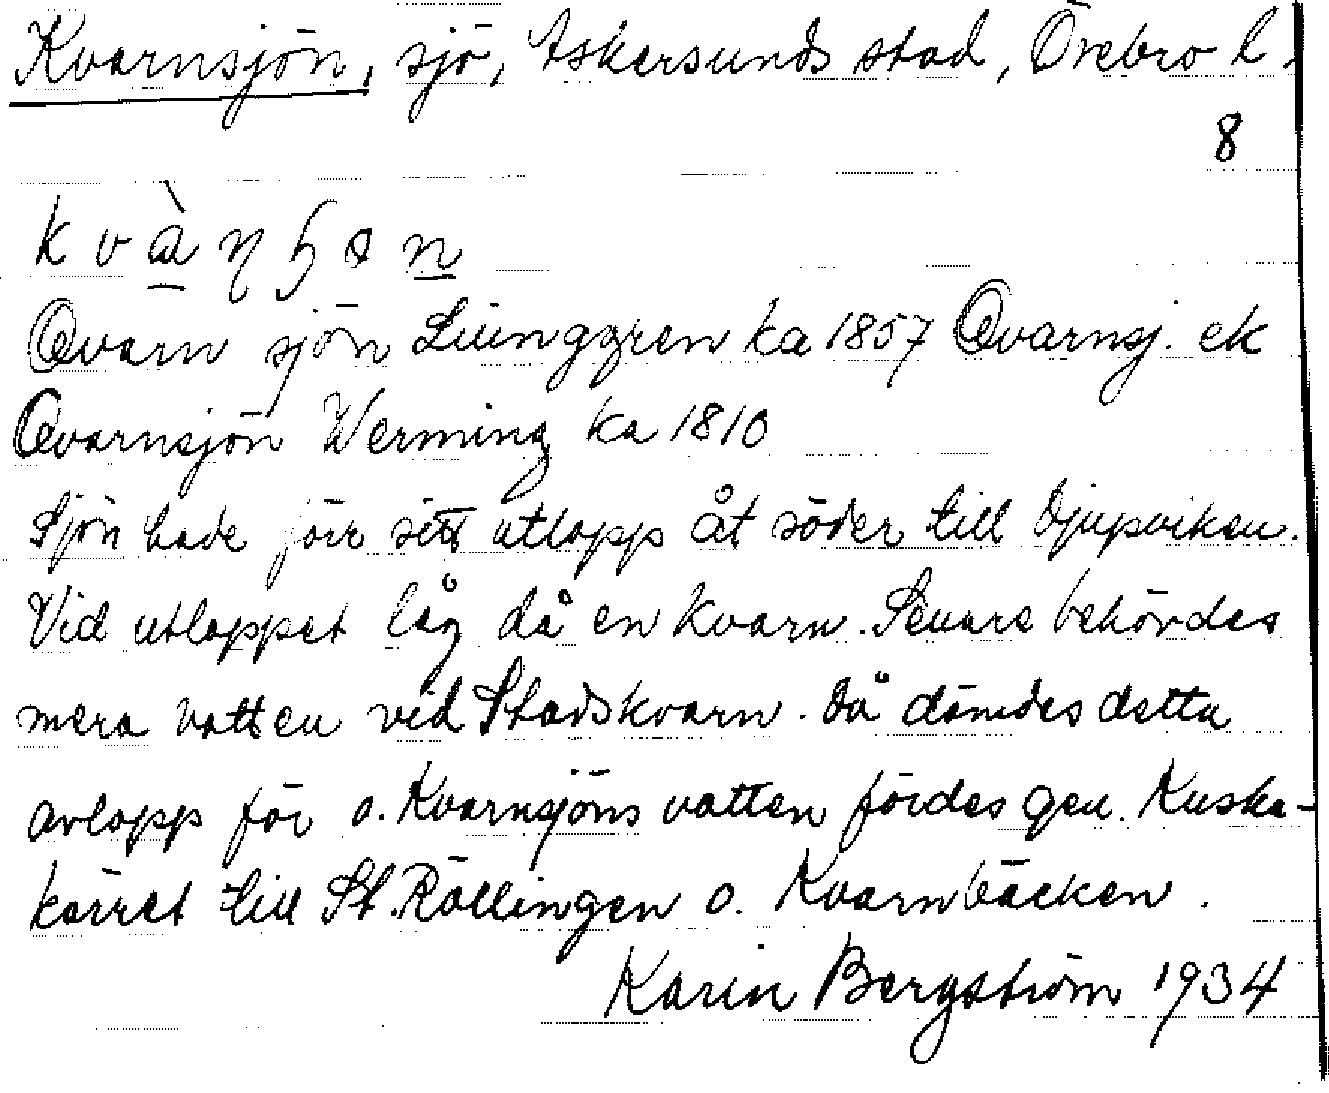 Kvarnsjön, sjö, Askersunds stad, Örebro l.
8
Qvarn sjön Liunggren ka 1857 Qvarnsj. ek
Qvarnsjön Werming ka 1810
Sjön hade förr sitt utlopp åt söder till Djupviken.
Vid utloppet låg då en kvarn. Senare behövdes
mera vatten vid Stadskvarn. Då dämdes detta
avlopp för o. Kvarnsjöns vatten fördes gen. Kuska-
kärret till St. Röllingen o. Kvarnbäcken.
Karin Bergström 1934